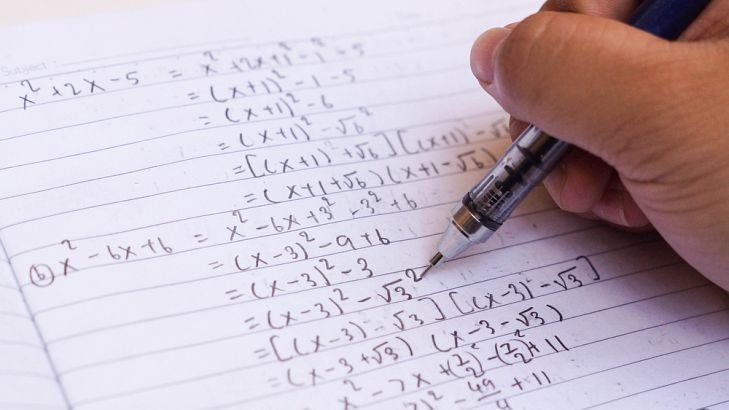 Subject
x² + 2x - 5 = x² + 2x + 1² - 1² - 5
= (x+1)² - 1 - 5
= (x+1)² - 6
= (x+1)² - √6²
= [(x+1) + √6] [(x+1) - √6]
= (x+1+√6) (x+1-√6)
(b) x² - 6x + 6 = x² - 6x + 3² - 3² + 6
= (x-3)² - 9 + 6
= (x-3)² - 3
= (x-3)² - √3²
= [(x-3) - √3] [(x-3) - √3]
= (x-3+√3) (x-3-√3)
x² - 7x + (7/2)² - (7/2)² + 11
)² - 49/4 + 11